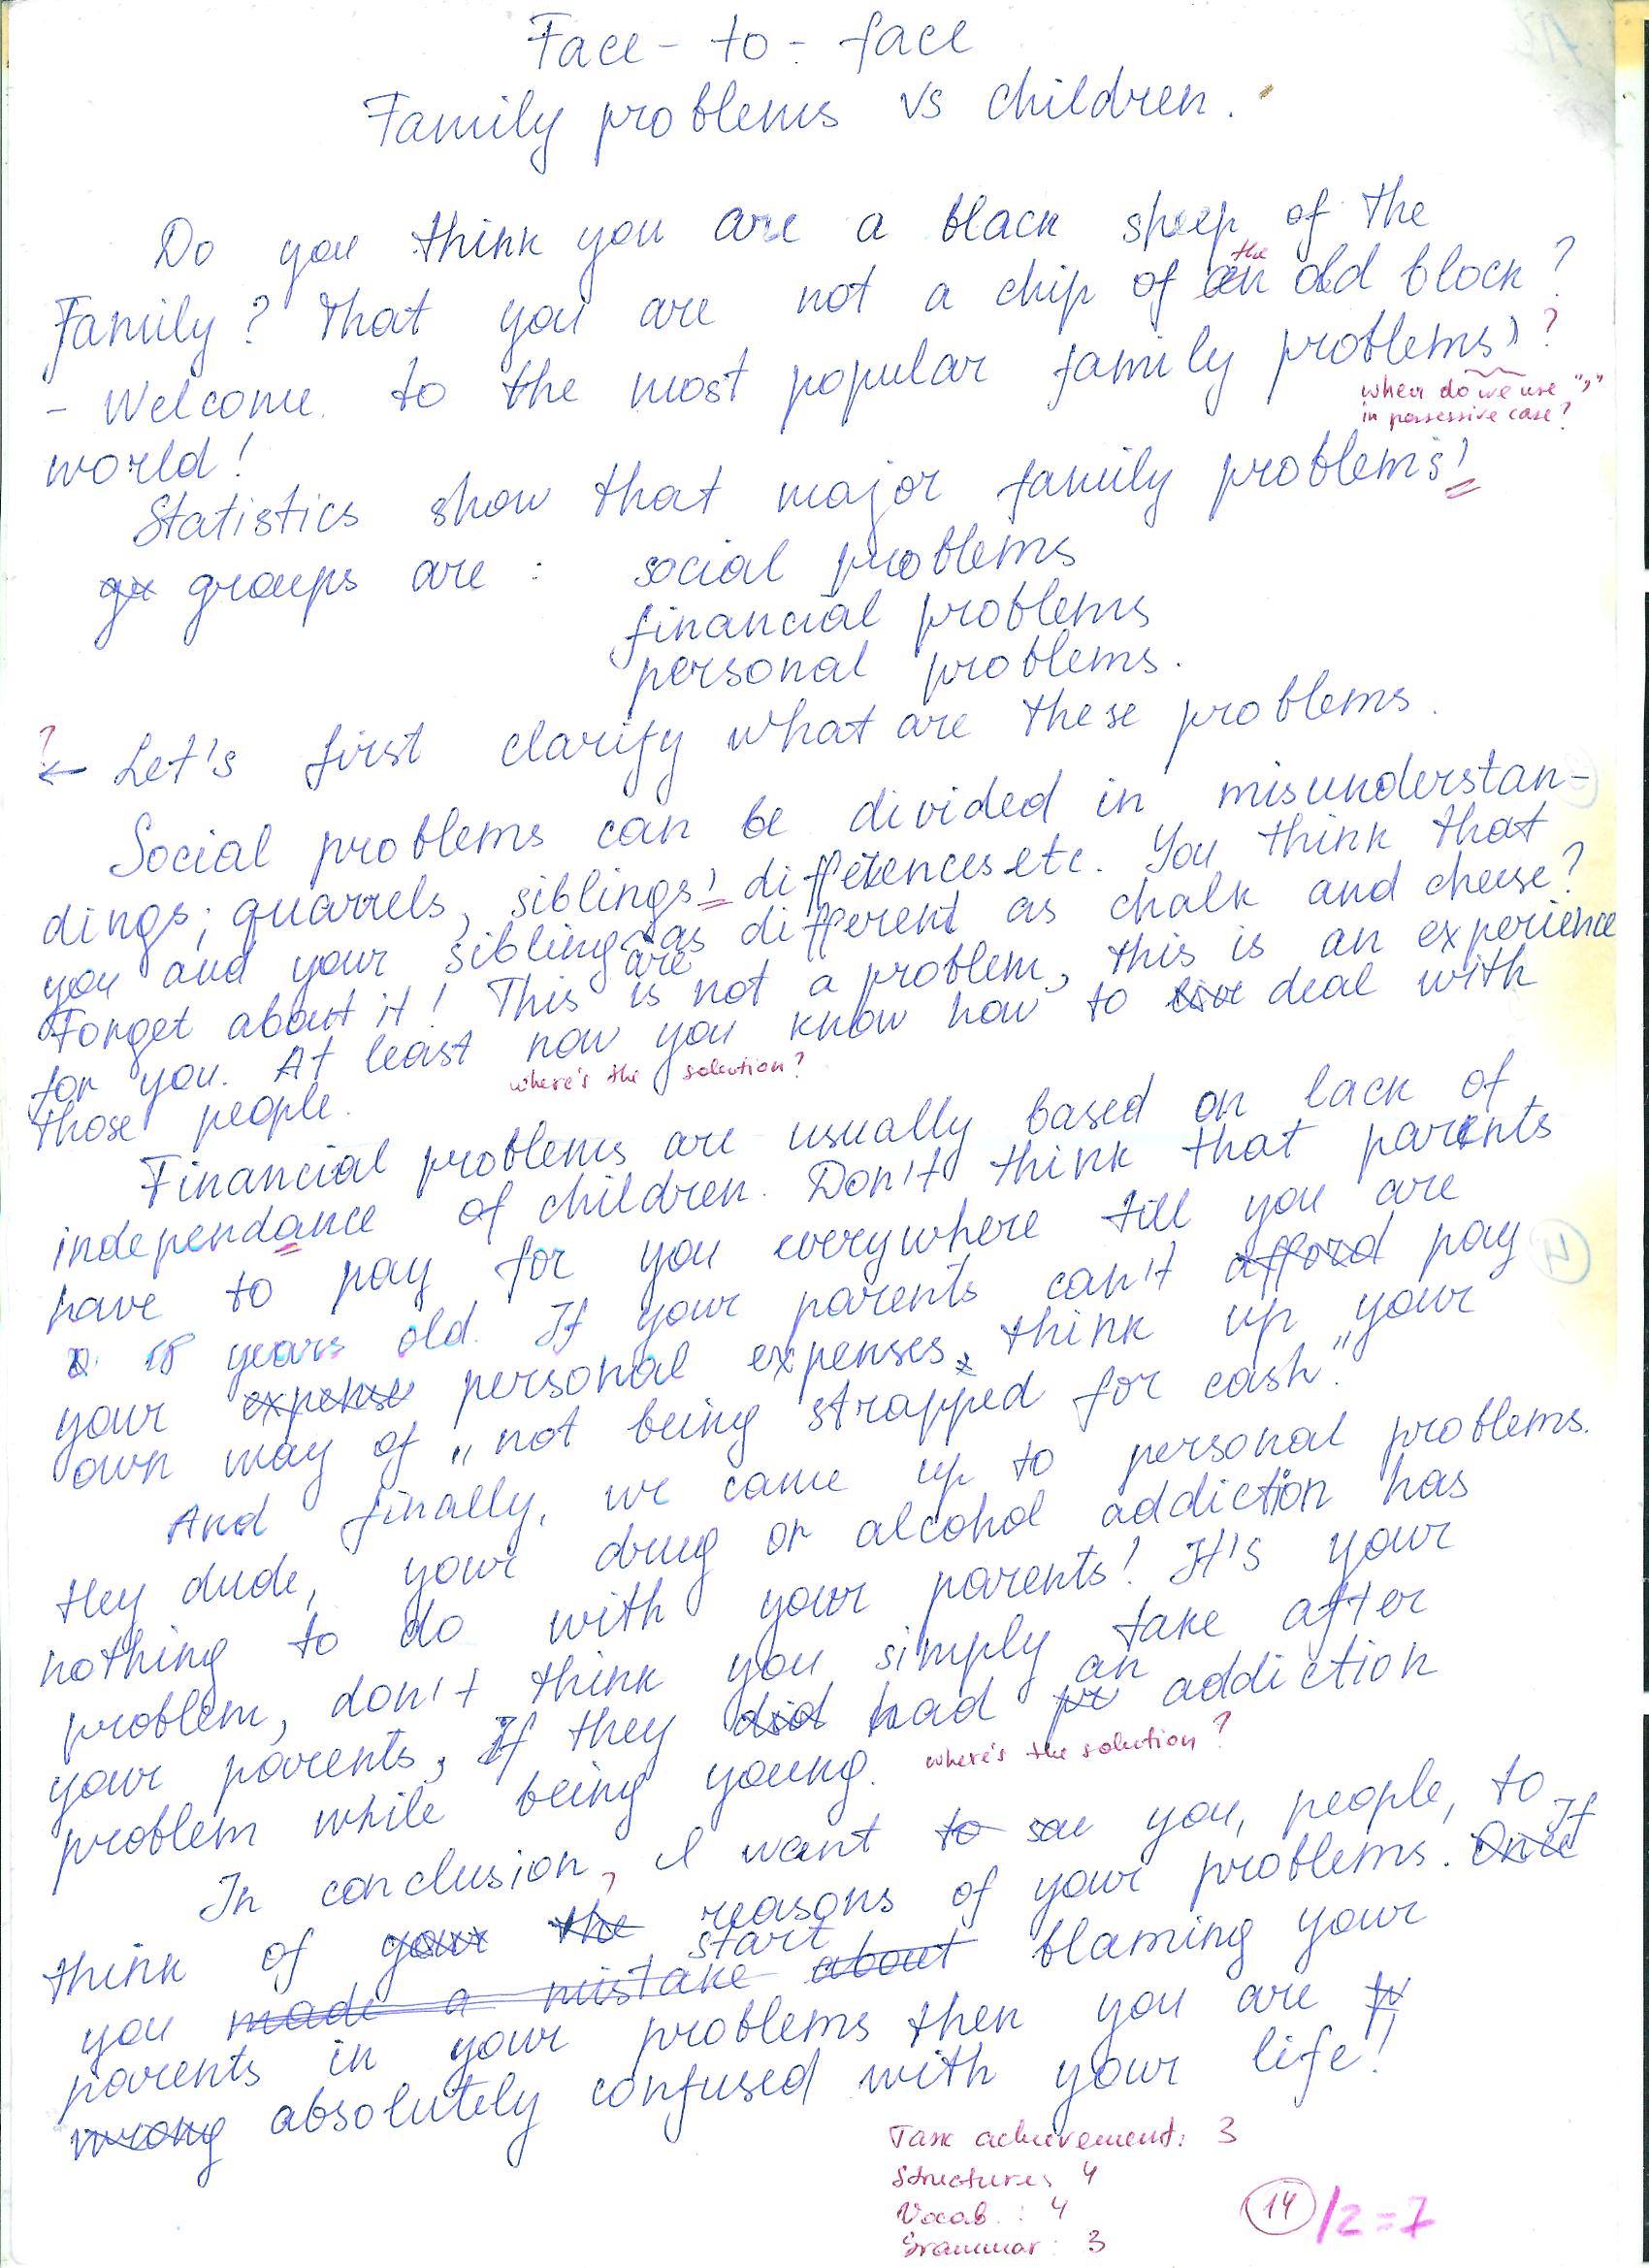 Face-to-face
Family problems vs children.
Do you think you are a black sheep of the
the
family? That you are not a chip of an old block?
- Welcome to the most popular family problems' ?
when do we use "'"
in possessive case?
world!
Statistics show that major family problems'
gr groups are: social problems
financial problems
personal problems.
?
← Let's first clarify what are these problems.
Social problems can be divided in misunderstan-
dings; quarrels, siblings' differences etc. You think that
you and your sibling are as different as chalk and cheese?
Forget about it! This is not a problem, this is an experience
for you. At least now you know how to live deal with
where's the solution?
those people.
Financial problems are usually based on lack of
independance of children. Don't think that parents
have to pay for you everywhere till you are
18 years old. If your parents can't afford pay
your expense personal expenses, think up your
own way of „not being strapped for cash".
And finally, we came up to personal problems.
Hey dude, your drug or alcohol addiction has
nothing to do with your parents! It's your
problem, don't think you simply take after
your parents, If they did had pr an addiction
problem while being young. where's the solution?
In conclusion, I want to you, people, to
think of your the reasons of your problems. Once If
you made a mistake about start blaming your
parents in your problems then you are
wrong absolutely confused with your life!
Task achievement: 3
Structures 4
Vocab.: 4
Grammar: 3
14/2=7
4